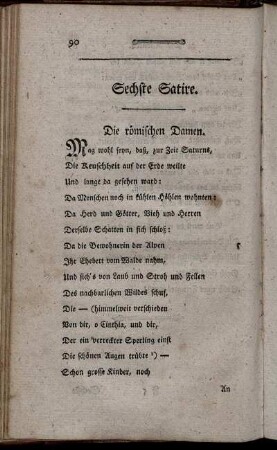 90
Sechste Satire.
Die römischen Damen.
Mag wohl seyn, daß, zur Zeit Saturns,
Die Keuschheit auf der Erde weilte
Und lange da gesehen ward:
Da Menschen noch in kühlen Höhlen wohnten:
Da Herd und Götter, Vieh und Herren
Derselbe Schatten in sich schloß:
Da die Bewohnerin der Alpen 5
Ihr Ehebett vom Walde nahm,
Und sich's von Laub und Stroh und Fellen
Des nachbarlichen Wildes schuf,
Die — (himmelweit verschieden
Von dir, o Cinthia, und dir,
Der ein verreckter Sperling einst
Die schönen Augen trübte ¹) —
Schon grosse Kinder, noch
An